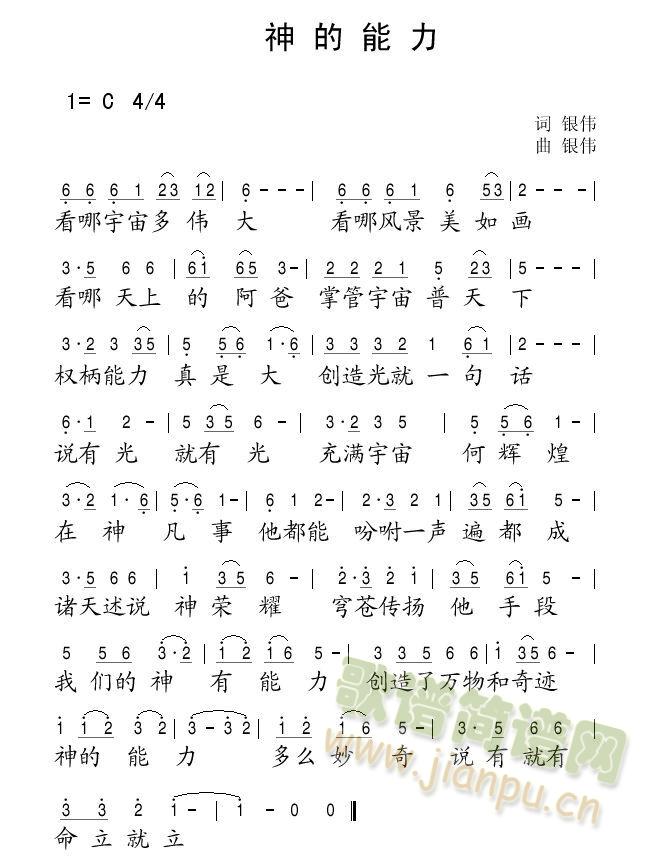 神的能力
1= C 4/4
词 银伟
曲 银伟
6 6 6 1 23 12 | 6 - - - | 6 6 6 1 6 53 | 2 - - - |
看哪宇宙多伟大 看哪风景美如画
3·5 6 6 | 61 65 3- | 2 2 2 1 5 23 | 5 - - - |
看哪天上的阿爸掌管宇宙普天下
3·2 3 35 | 5 56 1·6 | 3 3 3 2 1 61 | 2 - - - |
权柄能力真是大 创造光就一句话
6·1 2 - | 5 35 6 - | 3·2 3 5 | 5 56 1 - |
说有光 就有光 充满宇宙 何辉煌
3·2 1·6 | 5·6 1- | 6 1 2 - | 2·3 2 1 | 35 61 5 - |
在神凡事他都能 吩咐一声遍都成
3·5 6 6 | 1 35 6 - | 2·3 2 1 | 35 61 5 - |
诸天述说神荣耀 穹苍传扬他手段
5 56 3·2 | 12 16 5 - | 3 3 5 6 6 | 1 356 - |
我们的神有能力 创造了万物和奇迹
1 12 3 2 | 3 - 32 | 12 16 5 - | 3·5 6 6 |
神的能力 多么妙奇说有就有
3 3 2 1 - | 1 - 0 0 ‖
命立就立
歌谱简谱网
www.jianpu.cn